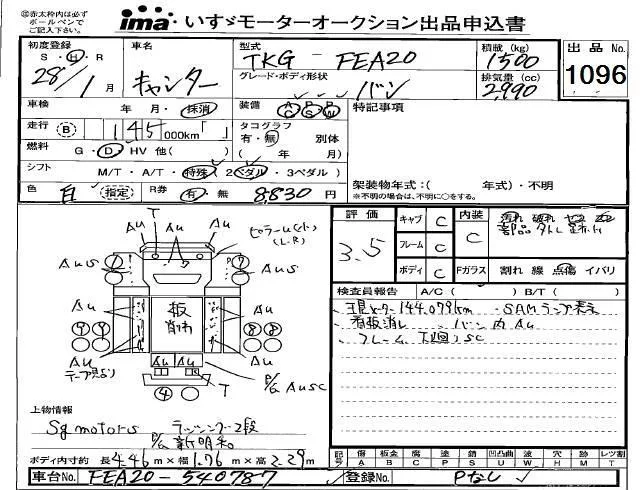 ㊟赤太枠内は必ず
ボールペンで
ご記入下さい。
ima いすゞモーターオークション出品申込書
初度登録 車名 型式 積載(kg) 出品No.
S・H・R キャンター TKG - FEA20 1500 1096
28年1月 グレード・ボディ形状 バン 排気量(cc) 2,990
車検 年 月・抹消 装備 AC PS PW 特記事項
走行 B 145000km「 」 タコグラフ 有・無 別体
燃料 G・D・HV 他( ) ( 年 月)
シフト M/T・A/T・特殊 2ペダル・3ペダル) 架装物年式:( 年式)・不明
※不明の場合は、不明に○をする。
色 白 指定 R券 有・無 8,830円
評価 3.5 キャブ C 内装 C
フレーム C
ボディ C Fガラス 割れ 線 点傷 イバリ
検査員報告 A/C( ) B/T( )
現メーター144,079km ・SAMランプ表示
看板消し バン内AU
フレーム 下廻りSC
T T
AU AU AU
ピラーAU(小)
(L・R)
AUS
AU AU
板
削れ
AU AU
AU AU AU
テープ残り
P/G AUSC
T
上物情報
Sg motors ラッシング2段
P/G 新明和
ボディ内寸約 長4.46m×幅1.76m×高2.29m
記号 傷 板金 腐 塗 錆 凹凸曲 波 穴 跡 レンズ割
A B C P S U W H M T
車台No. FEA20-540787 登録No. Pなし